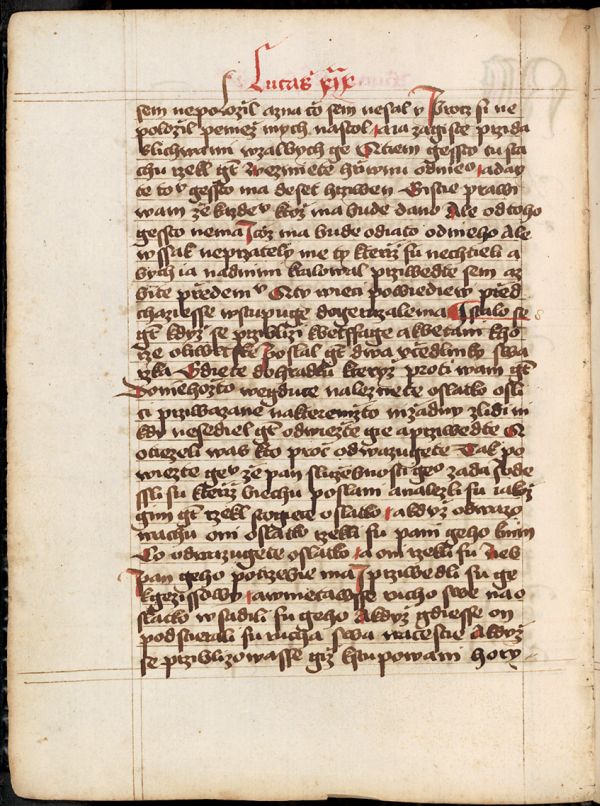 Lucas xix
sem nepolozil azna co sem nesal y Procz si ne
polozil peniez mych nastol a ia zagiste przida
s lichwami wzalbych ge Ktiem gessto tu sta
chu rzekl gt Wezmiete hrziwnu odnieo a day
te tov gessto ma deset hrziwen Gistie prawi
wam ze kazdev ktoz ma bude dano Ale odtoho
gessto nema Icoz ma bude odiato odnieho Ale
wssak neprzately me ty kterzi su nechtieli a
bych ia nadnimi kralowal przywedte sem az
bite predemv Kty wieci powiediew pred
chaziesse wstupuge dogeruzalema Istalo se
gt kdyz se przyblizi kbetffage abetani kho
rze oliwetske poslal gt dwa vczedlniky swa
rzka Gdiete dohradku kteryz proti wam gt
Doniehozto wegduce naleznete oslatko osli
ci przywazane nakteremzto nizadny zlidi ni
kdy nesediel gt odwiezte gie a przywedte K
otiezeli was kto proc odwazugete Tak po
wiezte gev ze pan sluzebnosti geo zada Sode
ssli su kterzi biechu poslani analezli su iakoz
gim gt rzekl stogiete oslatko akdyz odwazo
wachu oni oslatko rzekli su pani geho knim
Co odwazugete oslatko a oni rzekli su Neb
pan geho potrzebie ma I przywedli su ge
kgezissowi ametawsse rucho swe na o
slatko wsadili su geho Akdyz gdiesse on
podstierali su rucha swa nacestie Akdyz
se przyblizowasse giz kstupowani hory